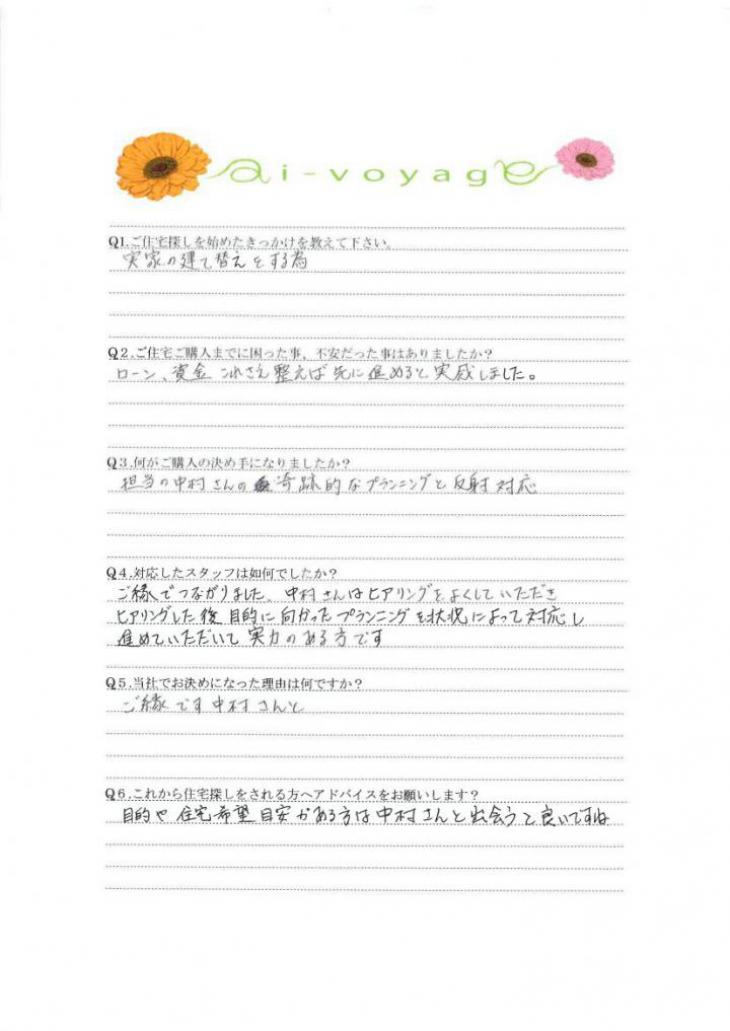 ai-voyage
Q1.ご住宅探しを始めたきっかけを教えて下さい。
実家の建て替えをする為
Q2.ご住宅ご購入までに困った事、不安だった事はありましたか?
ローン、資金 これさえ整えば先に進めると実感しました。
Q3.何がご購入の決め手になりましたか?
担当の中村さんの 奇跡的なプランニングと反射対応
Q4.対応したスタッフは如何でしたか?
ご縁でつながりました、中村さんはヒアリングをよくしていただき
ヒアリングした後 目的に向かったプランニングを状況によって対応し
進めていただいて実力のある方です
Q5.当社でお決めになった理由は何ですか?
ご縁です中村さんと
Q6.これから住宅探しをされる方へアドバイスをお願いします?
目的や住宅希望目安がある方は中村さんと出会うと良いですね